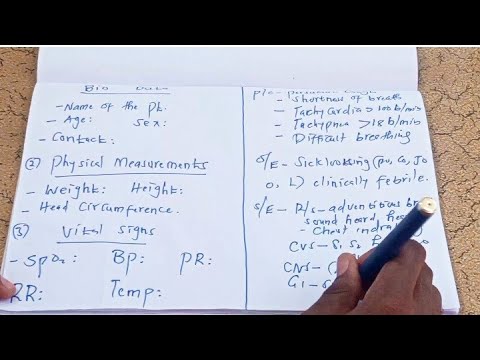 Bio Data
- Name of the pt:
- Age: Sex:
- Contact:
(2) Physical Measurements
- Weight: Height:
- Head Circumference:
(3) Vital Signs
- SpO2: Bp: PR:
RR: Temp:
P/c -
- Shortness of breath
- Tachycardia > 100 b/min
- Tachypnea > 18 b/min
- Difficult breathing
O/E - Sick looking (P0, C0, J0
0, L) clinically febrile.
S/E - R/s - adventitious
sound heard,
- Chest indrawing
CVS - S1 S2
CNS -
GI -